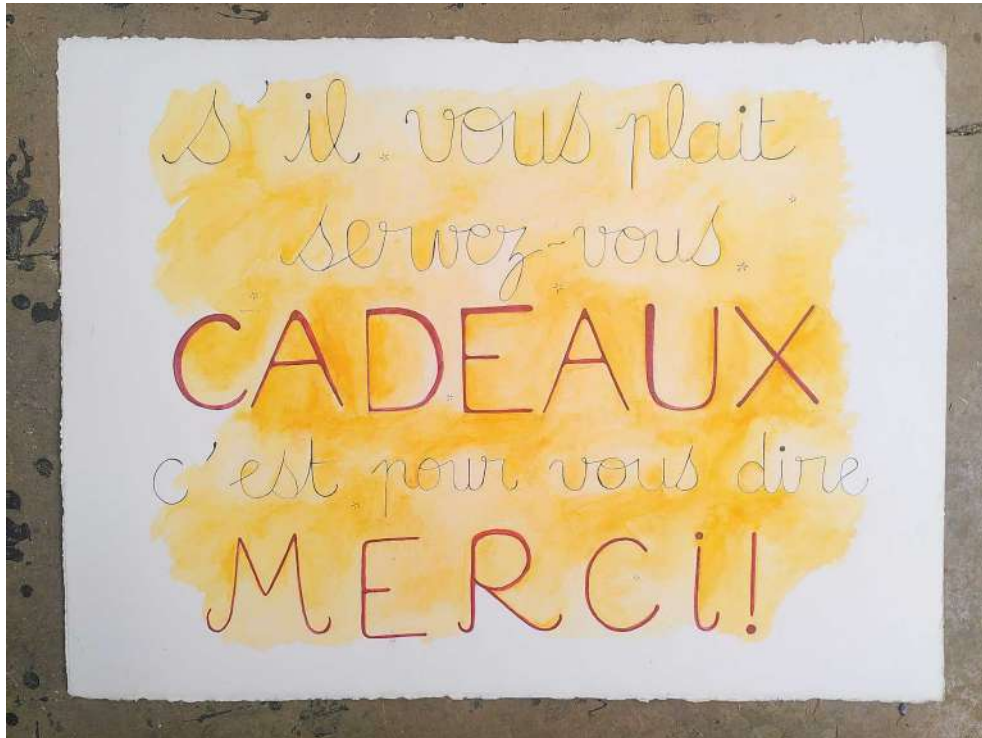 s'il vous plait
servez-vous
CADEAUX
c'est pour vous dire
MERCi!